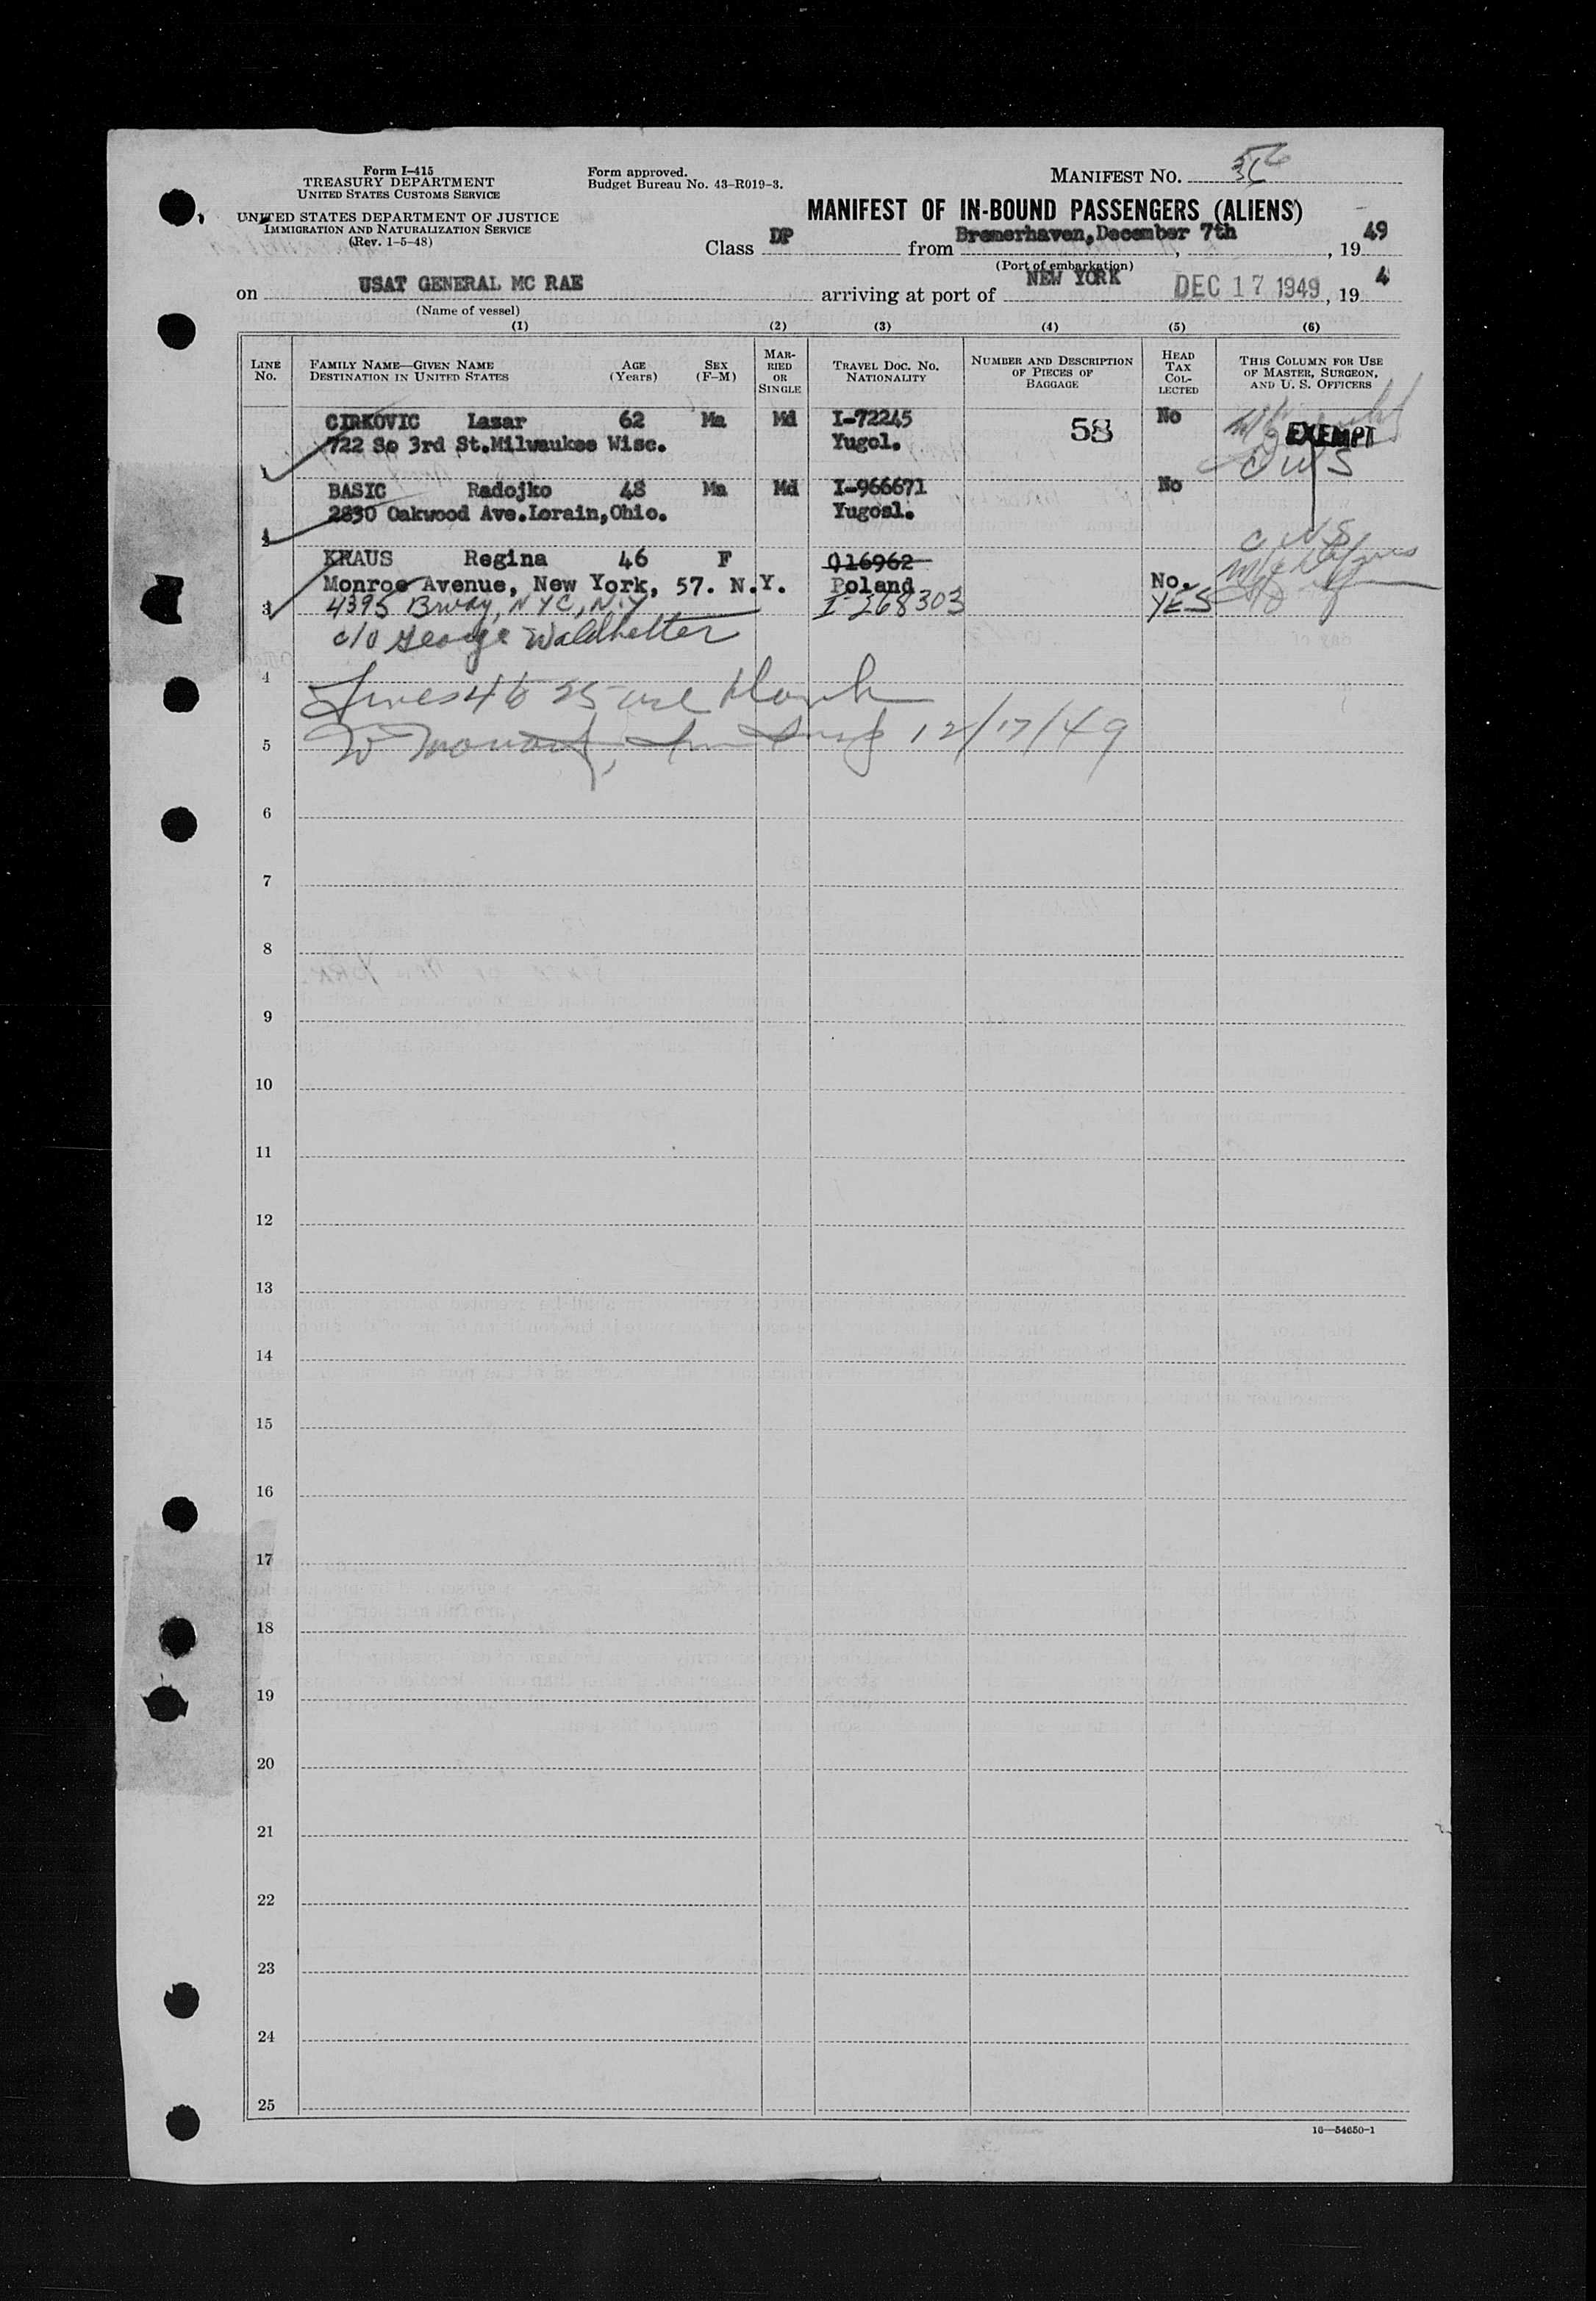 Form I-415
TREASURY DEPARTMENT
UNITED STATES CUSTOMS SERVICE
UNITED STATES DEPARTMENT OF JUSTICE
IMMIGRATION AND NATURALIZATION SERVICE
(Rev. 1-5-48)
Form approved.
Budget Bureau No. 43-R019-3.
MANIFEST NO.
MANIFEST OF IN-BOUND PASSENGERS (ALIENS)
Class DP from Bremerhaven, December 7th, 19 49
(Port of embarkation)
on USAT GENERAL MC RAE arriving at port of NEW YORK DEC 17 1949, 19 4
(Name of vessel)
(1) (2) (3) (4) (5) (6)
LINE No. FAMILY NAME—GIVEN NAME DESTINATION IN UNITED STATES AGE (Years) SEX (F-M) MARRIED OR SINGLE TRAVEL DOC. NO. NATIONALITY NUMBER AND DESCRIPTION OF PIECES OF BAGGAGE HEAD TAX COLLECTED THIS COLUMN FOR USE OF MASTER, SURGEON, AND U. S. OFFICERS
CIRKOVIC Lazar 62 Ma Md I-72245 58 No
722 So 3rd St.Milwaukee Wisc. Yugol. EXEMPT
1
BASIC Radojko 48 Ma Md I-966671 No
2830 Oakwood Ave.Lorain,Ohio. Yugosl.
2
KRAUS Regina 46 F Q16962
Monroe Avenue, New York, 57. N.Y. Poland No.
3 4395 Brway, NYC, N.Y I-268303 YES
c/o George Waldhelter
4 Lines 4 to 25 are blank
5 12/17/49
6
7
8
9
10
11
12
13
14
15
16
17
18
19
20
21
22
23
24
25
16—54650-1